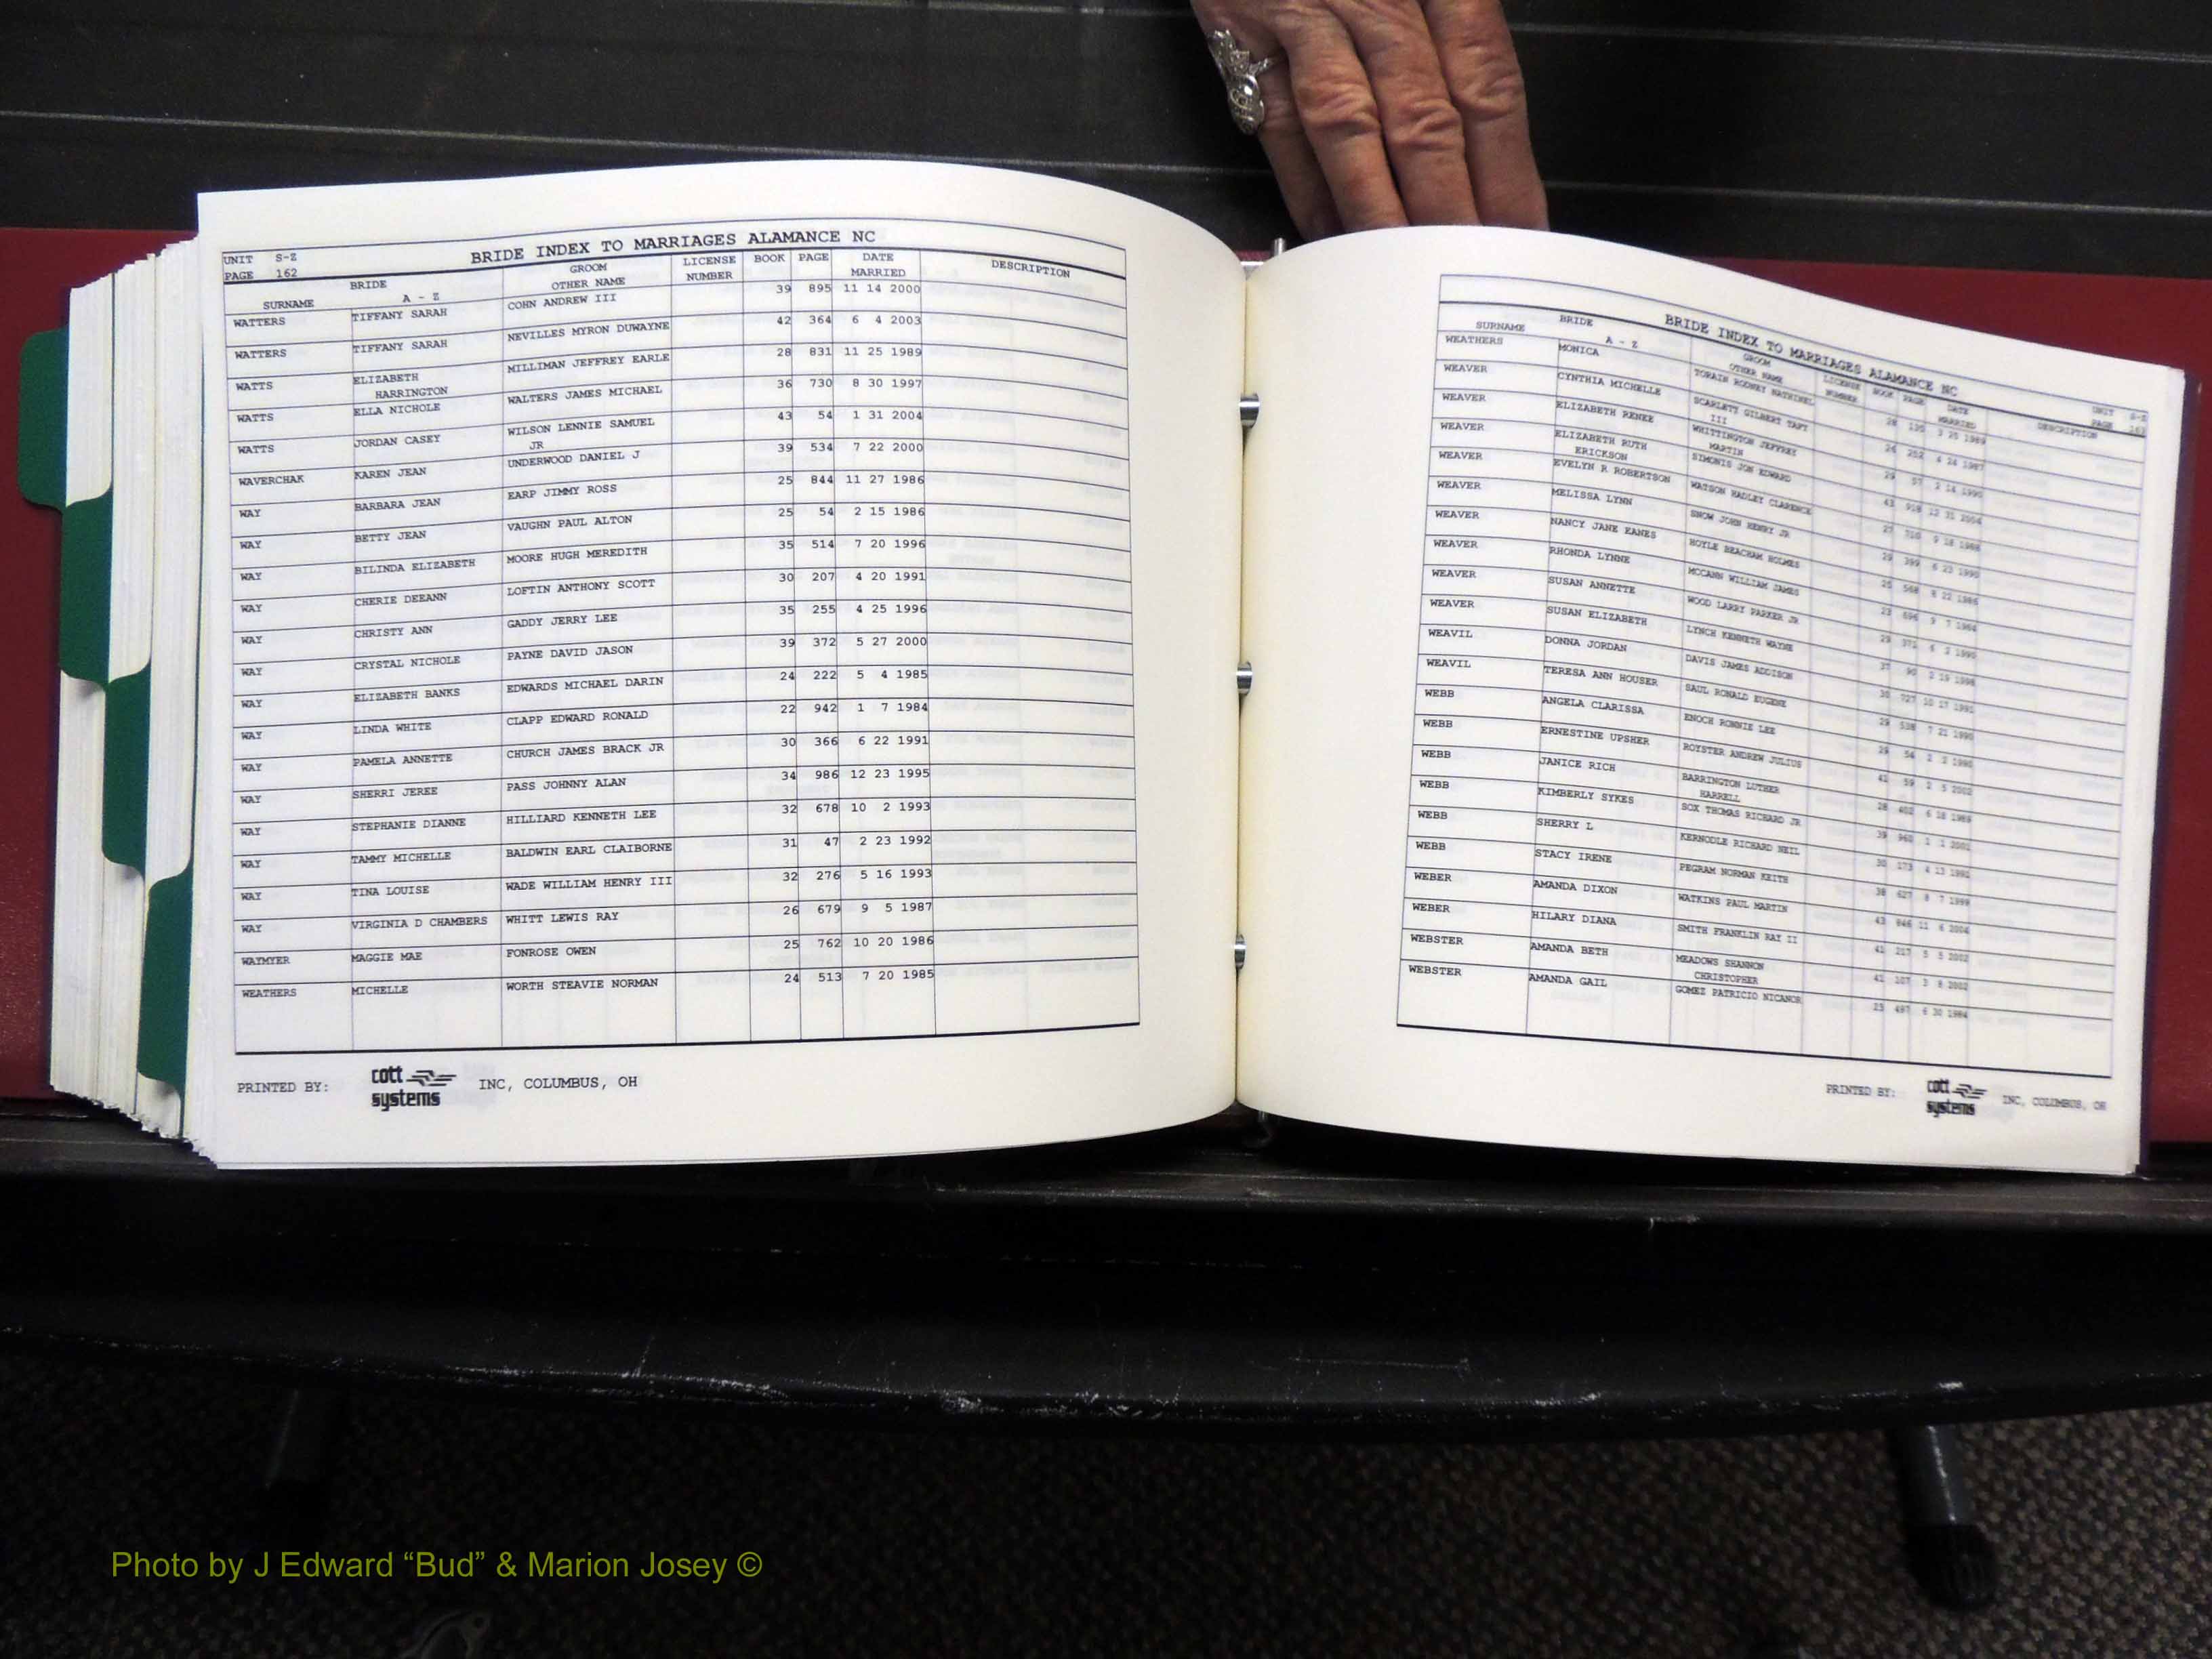 UNIT S-Z
PAGE 162
BRIDE INDEX TO MARRIAGES ALAMANCE NC
BRIDE GROOM LICENSE BOOK PAGE DATE DESCRIPTION
SURNAME A - Z OTHER NAME NUMBER MARRIED
WATTERS TIFFANY SARAH COHN ANDREW III 39 895 11 14 2000
WATTERS TIFFANY SARAH NEVILLES MYRON DUWAYNE 42 364 6 4 2003
WATTS ELIZABETH MILLIMAN JEFFREY EARLE 28 831 11 25 1989
HARRINGTON
WATTS ELLA NICHOLE WALTERS JAMES MICHAEL 36 730 8 30 1997
WATTS JORDAN CASEY WILSON LENNIE SAMUEL 43 54 1 31 2004
JR
WAVERCHAK KAREN JEAN UNDERWOOD DANIEL J 39 534 7 22 2000
WAY BARBARA JEAN EARP JIMMY ROSS 25 844 11 27 1986
WAY BETTY JEAN VAUGHN PAUL ALTON 25 54 2 15 1986
WAY BILINDA ELIZABETH MOORE HUGH MEREDITH 35 514 7 20 1996
WAY CHERIE DEEANN LOFTIN ANTHONY SCOTT 30 207 4 20 1991
WAY CHRISTY ANN GADDY JERRY LEE 35 255 4 25 1996
WAY CRYSTAL NICHOLE PAYNE DAVID JASON 39 372 5 27 2000
WAY ELIZABETH BANKS EDWARDS MICHAEL DARIN 24 222 5 4 1985
WAY LINDA WHITE CLAPP EDWARD RONALD 22 942 1 7 1984
WAY PAMELA ANNETTE CHURCH JAMES BRACK JR 30 366 6 22 1991
WAY SHERRI JEREE PASS JOHNNY ALAN 34 986 12 23 1995
WAY STEPHANIE DIANNE HILLIARD KENNETH LEE 32 678 10 2 1993
WAY TAMMY MICHELLE BALDWIN EARL CLAIBORNE 31 47 2 23 1992
WAY TINA LOUISE WADE WILLIAM HENRY III 32 276 5 16 1993
WAY VIRGINIA D CHAMBERS WHITT LEWIS RAY 26 679 9 5 1987
WAYMYER MAGGIE MAE FONROSE OWEN 25 762 10 20 1986
WEATHERS MICHELLE WORTH STEAVIE NORMAN 24 513 7 20 1985
PRINTED BY: cott systems INC, COLUMBUS, OH
BRIDE INDEX TO MARRIAGES ALAMANCE NC
UNIT S-Z
PAGE 163
BRIDE GROOM LICENSE BOOK PAGE DATE DESCRIPTION
SURNAME A - Z OTHER NAME NUMBER MARRIED
WEATHERS MONICA TORAIN RODNEY NATHINEL
WEAVER CYNTHIA MICHELLE SCARLETT GILBERT TAFT
III
WEAVER ELIZABETH RENEE WHITTINGTON JEFFREY
MARTIN
WEAVER ELIZABETH RUTH SIMONIS JON EDWARD
ERICKSON
WEAVER EVELYN R ROBERTSON WATSON HADLEY CLARENCE
WEAVER MELISSA LYNN SNOW JOHN HENRY JR
WEAVER NANCY JANE EANES HOYLE BEACHAM HOLMES
WEAVER RHONDA LYNNE MCCANN WILLIAM JAMES
WEAVER SUSAN ANNETTE WOOD LARRY PARKER JR
WEAVER SUSAN ELIZABETH LYNCH KENNETH WAYNE
WEAVIL DONNA JORDAN DAVIS JAMES ADDISON
WEAVIL TERESA ANN HOUSER SAUL RONALD EUGENE
WEBB ANGELA CLARISSA ENOCH RONNIE LEE
WEBB ERNESTINE UPSHER ROYSTER ANDREW JULIUS
WEBB JANICE RICH BARRINGTON LUTHER
HARRELL
WEBB KIMBERLY SYKES SOX THOMAS RICHARD JR
WEBB SHERRY L KERNODLE RICHARD NEIL
WEBB STACY IRENE PEGRAM NORMAN KEITH
WEBER AMANDA DIXON WATKINS PAUL MARTIN
WEBER HILARY DIANA SMITH FRANKLIN RAY II
WEBSTER AMANDA BETH MEADOWS SHANNON
CHRISTOPHER
WEBSTER AMANDA GAIL GOMEZ PATRICIO NICANOR
PRINTED BY: cott systems INC, COLUMBUS, OH
Photo by J Edward “Bud” & Marion Josey ©